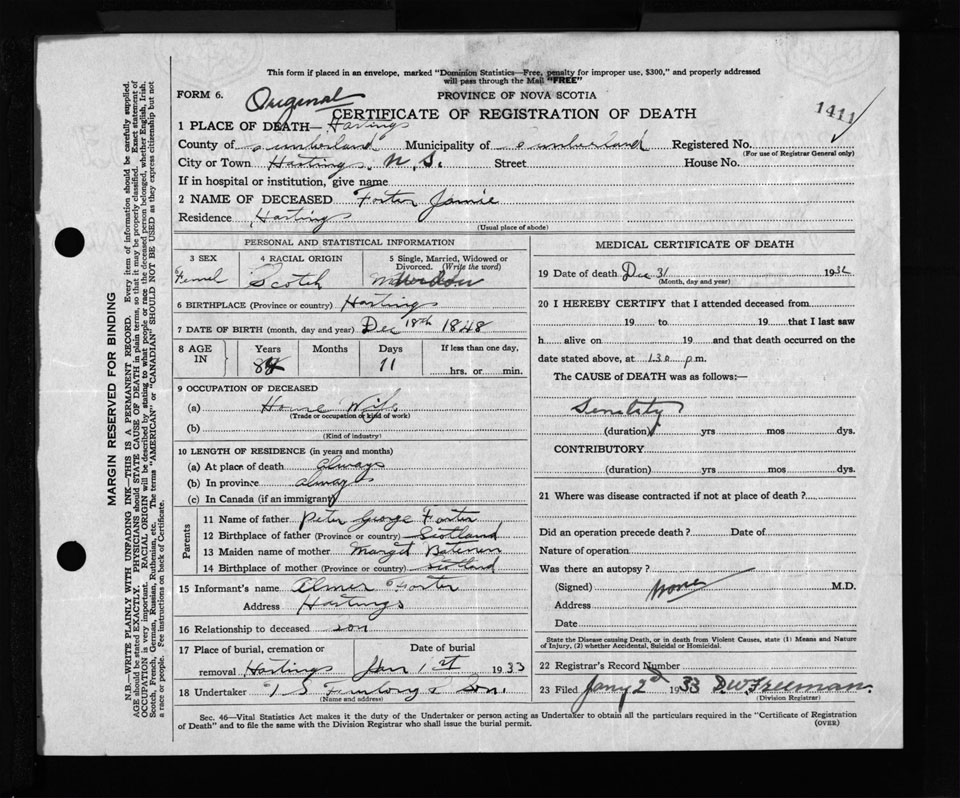 This form if placed in an envelope, marked "Dominion Statistics—Free, penalty for improper use, $300," and properly addressed
will pass through the Mail "FREE"
FORM 6. Original PROVINCE OF NOVA SCOTIA
1411
CERTIFICATE OF REGISTRATION OF DEATH
1 PLACE OF DEATH—
County of Cumberland Municipality of Cumberland Registered No.
(For use of Registrar General only)
City or Town Hastings, N.S. Street House No.
If in hospital or institution, give name
2 NAME OF DECEASED Foster Jamie
Residence Hastings
(Usual place of abode)
PERSONAL AND STATISTICAL INFORMATION
3 SEX 4 RACIAL ORIGIN 5 Single, Married, Widowed or
Divorced. (Write the word)
Scotch
6 BIRTHPLACE (Province or country) Hastings
7 DATE OF BIRTH (month, day and year) Dec 18th 1848
8 AGE IN Years Months Days If less than one day,
11 hrs. or min.
9 OCCUPATION OF DECEASED
(a) House Wife
(Trade or occupation or kind of work)
(b)
(Kind of industry)
10 LENGTH OF RESIDENCE (in years and months)
(a) At place of death always
(b) In province always
(c) In Canada (if an immigrant)
Parents
11 Name of father Peter George Foster
12 Birthplace of father (Province or country) Scotland
13 Maiden name of mother Margit
14 Birthplace of mother (Province or country) Scotland
15 Informant's name Elmer Foster
Address Hastings
16 Relationship to deceased son
17 Place of burial, cremation or Date of burial
removal Hastings Jan 1st 1933
18 Undertaker Son.
(Name and address)
MEDICAL CERTIFICATE OF DEATH
19 Date of death Dec 31 1932
(Month, day and year)
20 I HEREBY CERTIFY that I attended deceased from
19 to 19 that I last saw
h alive on 19 and that death occurred on the
date stated above, at 1.30 p.m.
The CAUSE OF DEATH was as follows:—
Senility
(duration) yrs mos dys.
CONTRIBUTORY
(duration) yrs mos dys.
21 Where was disease contracted if not at place of death?
Did an operation precede death? Date of
Nature of operation
Was there an autopsy?
(Signed) None M.D.
Address
Date
State the Disease causing Death, or in death from Violent Causes, state (1) Means and Nature
of Injury, (2) whether Accidental, Suicidal or Homicidal.
22 Registrar's Record Number
23 Filed Jany 2nd 1933 D.W. Freeman.
(Division Registrar)
Sec. 46—Vital Statistics Act makes it the duty of the Undertaker or person acting as Undertaker to obtain all the particulars required in the "Certificate of Registration
of Death" and to file the same with the Division Registrar who shall issue the burial permit.
(OVER)
MARGIN RESERVED FOR BINDING
N.B.—WRITE PLAINLY WITH UNFADING INK—THIS IS A PERMANENT RECORD. Every item of information should be carefully supplied.
AGE should be stated EXACTLY. PHYSICIANS should STATE CAUSE OF DEATH in plain terms, so that it may be properly classified. Exact statement of
OCCUPATION is very important. RACIAL ORIGIN will be described by stating to what people or race the deceased person belonged, whether English, Irish,
Scotch, French, German, Russian, Ruthenian, etc. The terms "AMERICAN" or "CANADIAN" SHOULD NOT BE USED as they express citizenship but not
a race or people. Fee instructions on back of Certificate.